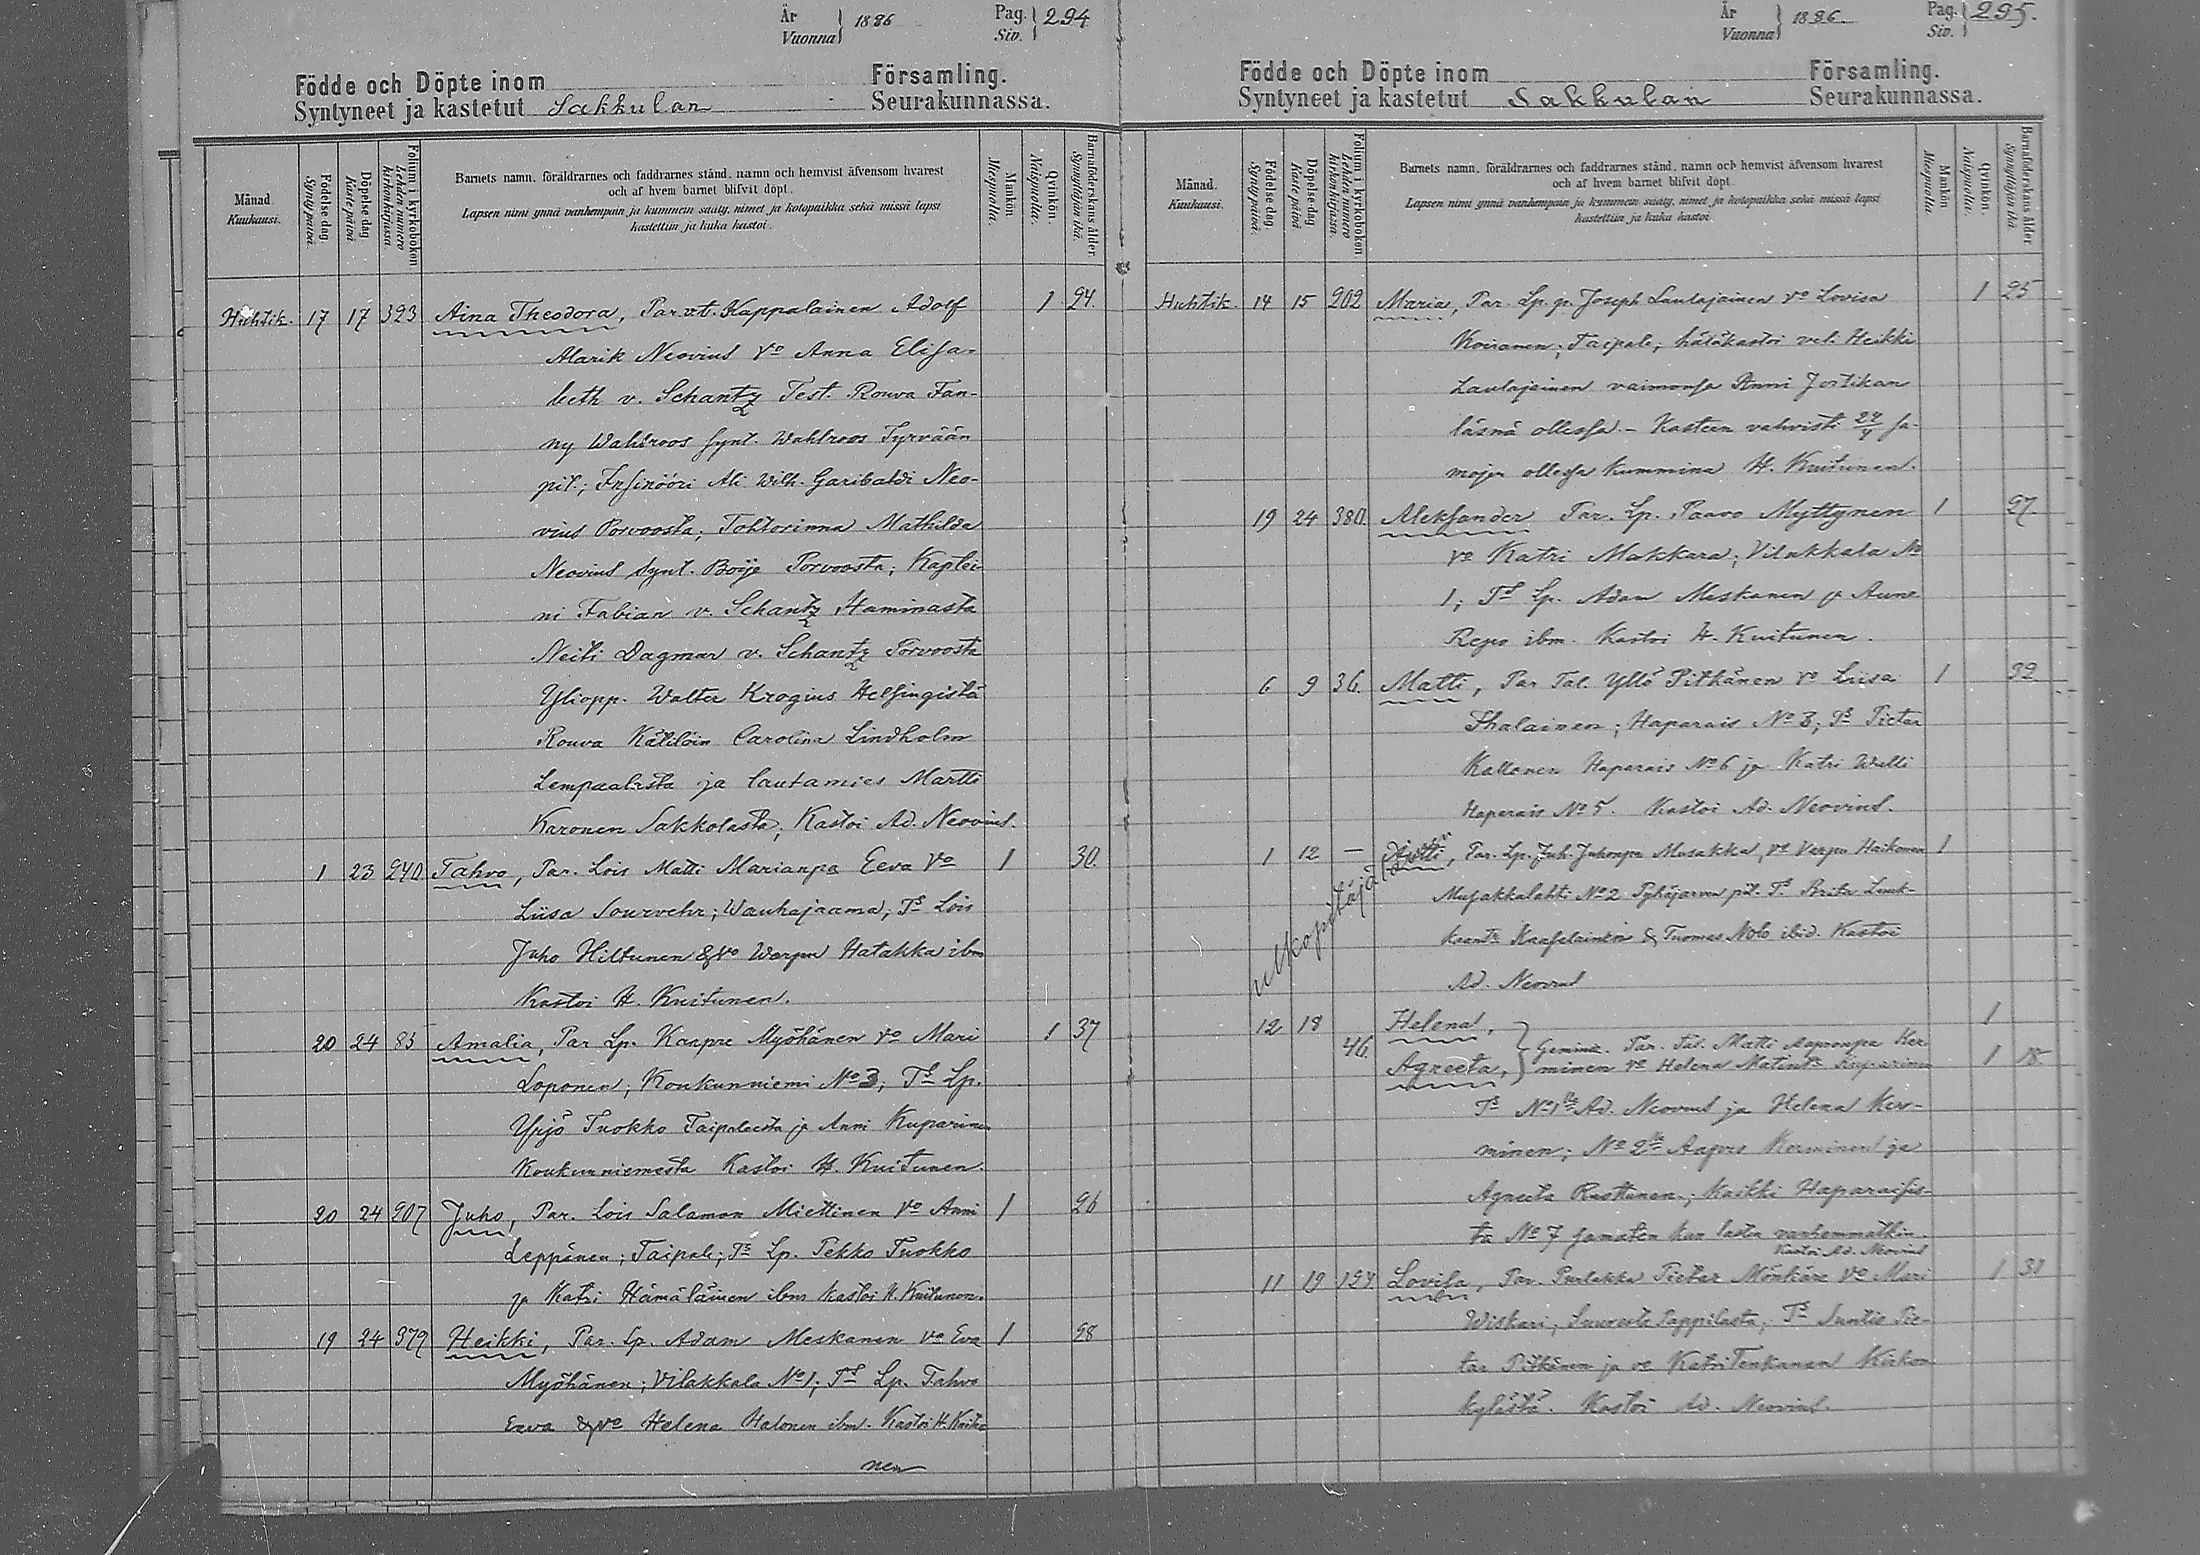 År
Vuonna } 1886
Pag.
Siv. } 294
Födde och Döpte inom Församling.
Syntyneet ja kastetut Sakkulan Seurakunnassa.
Månad.
Kuukausi.
Födelsedag
Syntypäivä.
Döpelsedag
Kastepäivä
Folium i kyrkoboken
Lehden numero kirkonkirjassa
Barnets namn, föräldrarnes och faddrarnes stånd, namn och hemvist äfvensom hvarest
och af hvem barnet blifvit döpt.
Lapsen nimi ynnä vanhempain ja kummein sääty, nimet ja kotopaikka sekä missä lapsi
kastettiin ja kuka kastoi.
Mankön.
Miespuolia.
Qvinkön.
Naispuolia.
Barnaföderskans ålder
Synnyttäjän ikä.
Huhtik. 17 17 393 Aina Theodora, Par. vt. Kappalainen Adolf 1 24.
Alarik Neovius Vo Anna Elisa-
beth v. Schantz Test. Rouva Fan-
ny Wahlroos synt. Wahlroos Tyrvään
pit.; Insinööri Ali Wilh. Garibaldi Neo-
vius Porvoosta; Tohtorinna Mathilda
Neovius synt. Boije Porvoosta; Kaptei-
ni Fabian v. Schantz Haminasta
Neiti Dagmar v. Schantz Porvoosta
Yliopp. Walter Krogius Helsingistä
Rouva Kätilöin Carolina Lindholm
Lempaalasta ja lautamies Martti
Karonen Sakkolasta; Kastoi Ad. Neovius.
1 23 240 Tahvo, Par. Lois Matti Marianpa Eeva Vo 1 30.
Liisa Sourvehr; Wauhajaama; Ts Lois
Juho Hiltunen & vo Warpu Hatakka ibm
Kastoi H. Kuitunen.
20 24 85 Amalia, Par Lp. Kaapre Myöhänen Vo Mari 1 37
Loponen; Koukunniemi No 3; Ts Lp.
Yrjö Tuokko Taipaleesta ja Anni Kuparinen
Koukunniemestä Kastoi H. Kuitunen.
20 24 207 Juho, Par. Lois Salamon Miettinen Vo Anni 1 26
Leppänen; Taipale; Ts Lp. Pekko Tuokko
ja Katri Hämäläinen ibm kastoi H. Kuitunen.
19 24 379 Heikki, Par. Lp. Adam Meskanen Vo Eva 1 28
Myöhänen; Vilakkala No 1; Ts Lp. Tahvo
Eeva & vo Helena Halonen ibm. Kastoi H. Kuitu-
nen
År
Vuonna } 1886.
Pag.
Siv. } 295.
Födde och Döpte inom Församling.
Syntyneet ja kastetut Sakkulan Seurakunnassa.
Månad.
Kuukausi.
Födelsedag
Syntypäivä.
Döpelsedag
Kastepäivä
Folium i kyrkoboken
Lehden numero kirkonkirjassa.
Barnets namn, föräldrarnes och faddrarnes stånd, namn och hemvist äfvensom hvarest
och af hvem barnet blifvit döpt.
Lapsen nimi ynnä vanhempain ja kummein sääty, nimet ja kotopaikka sekä missä lapsi
kastettiin ja kuka kastoi.
Mankön
Miespuolia
Qvinkön.
Naispuolia.
Barnaföderskans ålder
Synnyttäjän ikä.
Huhtik. 14 15 202 Maria, Par. Lp. p. Joseph Laulajainen Vo Lovisa 1 25
Koiranen; Taipale; hätäkastoi vel. Heikki
Laulajainen vaimonsa Anni Jortikan
läsnä ollessa. - Kasteen vahvisti 24/4 sa-
mojen ollessa kummina H. Kuitunen.
19 24 380. Aleksander Par. Lp. Paavo Myttynen 1 27.
Vo Katri Makkara; Vilakkala No
1; Ts Lp. Adam Meskanen ja Aune
Repo ibm. Kastoi H. Kuitunen.
6 9 36. Matti, Par Tal. Yllö Pitkänen Vo Liisa 1 32
Ihalainen; Haparais No 3; Ts Pietar
Kallonen Haparais No 6 ja Katri Walli
Haparais No 5. Kastoi Ad. Neovius.
1 12 — Antti, Par. Lp. Juh. Juhonpa Musakka, vo Varpu Haikonen 1
Musakkalahti No 2 Pyhäjärven pit. Ts Brita
& Tuomas Nolo ibid. Kastoi
Ad. Neovius
12 18 Helena, 1
46. } Gemina. Par. Tal. Matti Aaponpa Ker-
Agneeta, minen vo Helena Matint. Kuparinen 1 28.
Ts No 1 Ad. Neovius ja Helena Ker-
minen; No 2 Aapro Kerminen ja
Agneeta Rusttunen; kaikki Haparaisis-
ta No 7 samaten kun lasten vanhemmatkin.
Kastoi Ad. Neovius
11 19 197 Lovisa, Par. Purlakka Pietar Mönkäre Vo Mari 1 31
Wiskari; Suuresta Pappilasta; Ts Suntio Pie-
tar Pitkänen ja vo Katri Tenkanen Kirkon
kylästä. Kastoi Ad. Neovius.